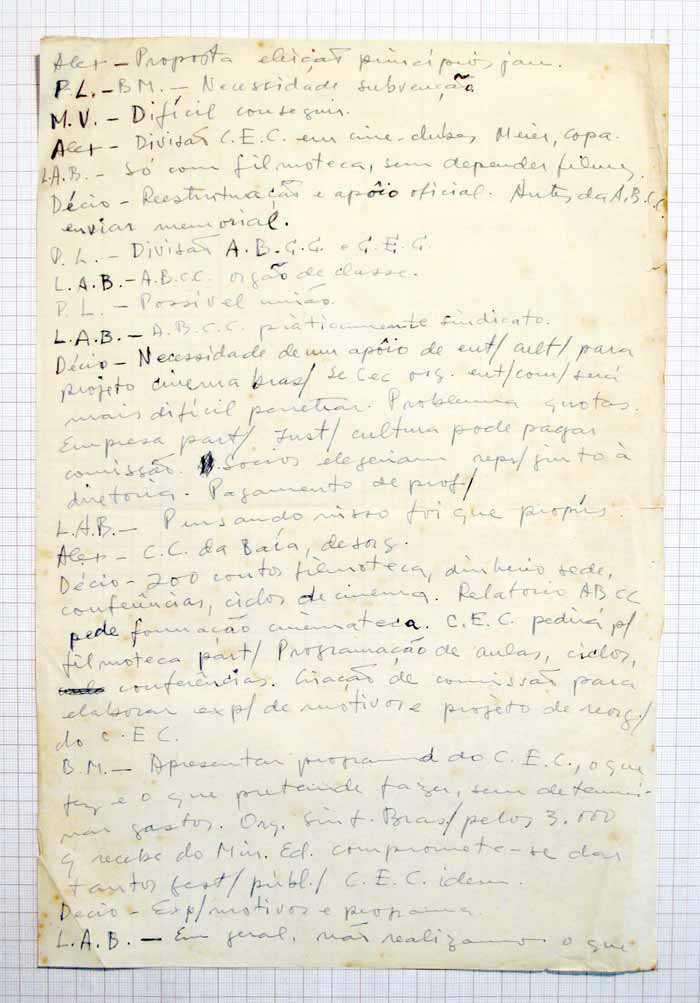 Alex - Proposta eleição princípios jan.
P.L. - B.M. - Necessidade subvenção
M.V. - Difícil conseguir.
Alex - Divisão C.E.C. em cine-clubes Meier, Copa.
L.A.B. - Só com filmoteca, sem depender filmes.
Décio - Reestruturação e apôio oficial. Antes da A.B.C.C.
enviar memorial.
P.L. - Divisão A.B.C.C. e C.E.C.
L.A.B. - A.B.C.C. orgão de classe.
P.L. - Possível união.
L.A.B. - A.B.C.C. pràticamente sindicato.
Décio - Necessidade de um apôio de ent/ cult/ para
projeto cinema bras/ Se Cec org. ent/com/será
mais difícil penetrar. Problema quotas.
Empresa part/ Inst/ cultura pode pagar
comissão. Socios elegeriam repr/ junto à
diretoria. Pagamento de prof/
L.A.B. - Pensando nisso foi que propús.
Alex - C.C. da Baía, desorg.
Décio - 200 contos filmoteca, dinheiro sede,
conferências, ciclos de cinema. Relatorio ABCC
pede formação cinemateca. C.E.C. pedirá p/
filmoteca part/ Programação de aulas, ciclos,
conferências. Criação de comissão para
elaborar exp/ de motivos e projeto de reorg./
do C.E.C.
B.M. - Apresentar programa do C.E.C., o que
fez e o que pretende fazer, sem determi-
nar gastos. Org. Sinf. Bras/ pelos 3.000
q recebe do Min. Ed. compromete-se dar
tantos fest/ públ./ C.E.C. idem.
Decio - Exp/motivos e programa.
L.A.B. - Em geral, não realizamos o que